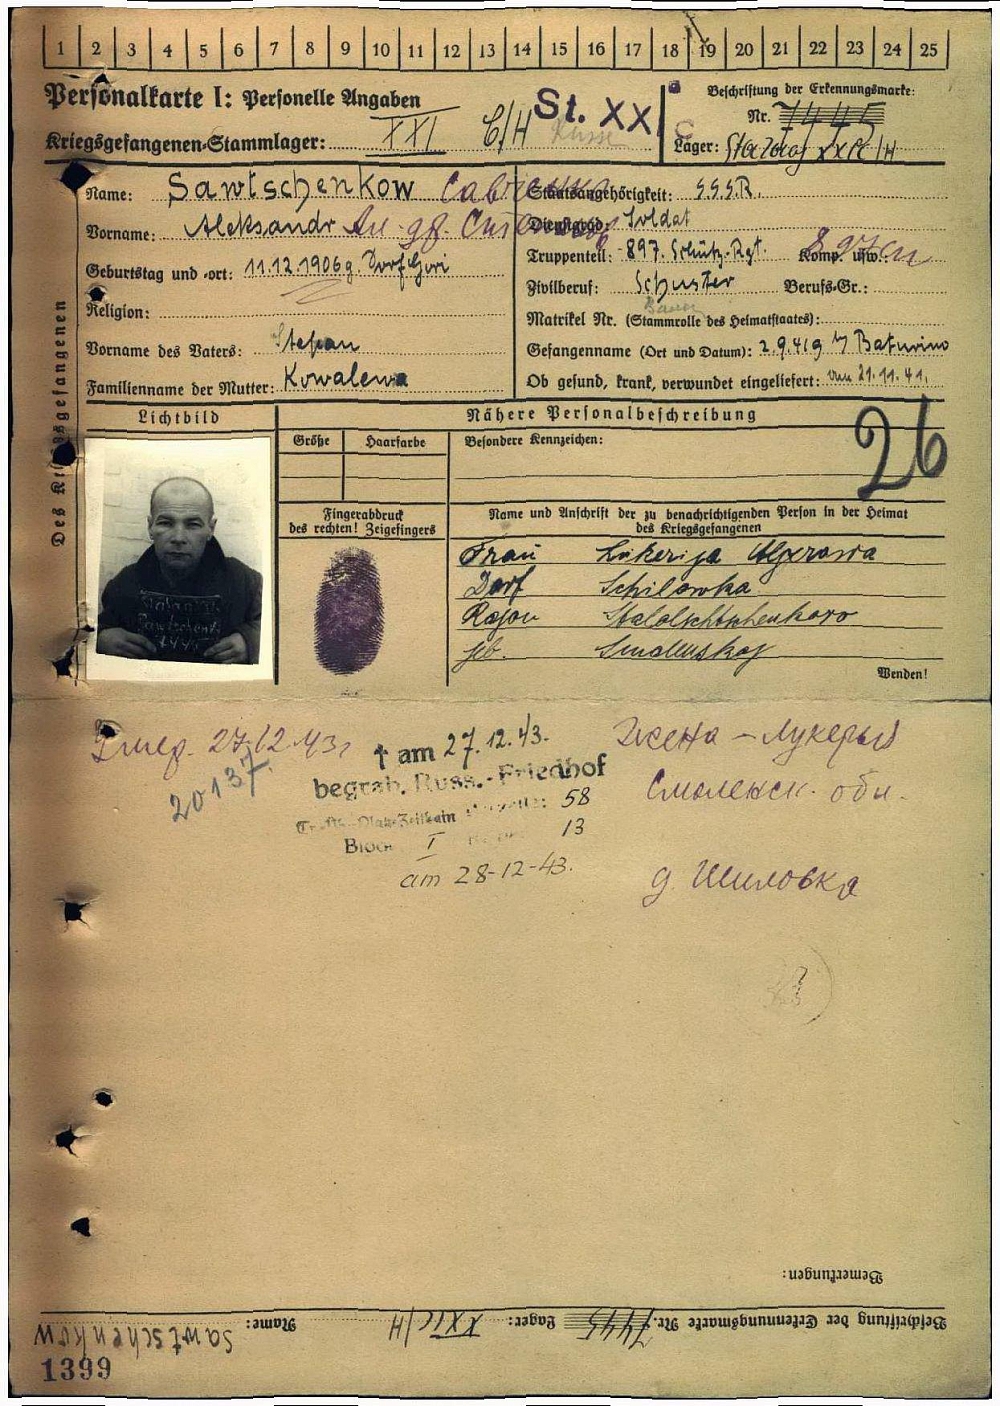 1 2 3 4 5 6 7 8 9 10 11 12 13 14 15 16 17 18 19 20 21 22 23 24 25
Personalkarte I: Personelle Angaben
Kriegsgefangenen-Stammlager: XXI C/H St. XX
Beschriftung der Erkennungsmarke:
Nr. 7445
Lager: Stalag XXI C/H
Des Kriegsgefangenen
Name: Sawtschenkow
Vorname: Aleksandr
Geburtstag und -ort: 11.12.1906g. Dorf Gori
Religion:
Vorname des Vaters: Stepan
Familienname der Mutter: Kowalewa
Staatsangehörigkeit: S.S.S.R.
Dienstgrad: Soldat
Truppenteil: 897. Schütz.-Rgt. Komp. usw.:
Zivilberuf: Schuster Berufs-Gr.:
Bauer
Matrikel Nr. (Stammrolle des Heimatstaates):
Gefangenname (Ort und Datum): 2.9.41g Baturino
Ob gesund, krank, verwundet eingeliefert: vom 21.11.41.
Lichtbild
Nähere Personalbeschreibung
Größe Haarfarbe Besondere Kennzeichen:
26
Fingerabdruck
des rechten! Zeigefingers
Name und Anschrift der zu benachrichtigenden Person in der Heimat
des Kriegsgefangenen
Frau Lukerija
Dorf Schilowka
Rajon
geb. Smolenskoj
Wenden!
7445
Умер. 27.12.43г
20137
† am 27.12.43.
begrab. Russ.-Friedhof
58
13
Block I
am 28-12-43.
Жена - Лукерья
Смоленск. обл.
д. Шиловка
Bemerkungen:
Beschriftung der Erkennungsmarke Nr. 7445 Lager: XXI C/H Name: Sawtschenkow
1399